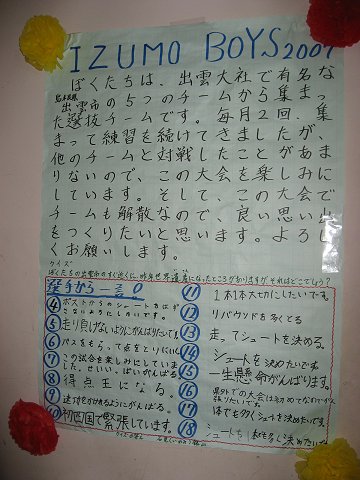 IZUMO BOYS 2007
ぼくたちは、出雲大社で有名な
島根県
出雲市の5つのチームから集まっ
た選抜チームです。毎月2回、集
まって練習を続けてきましたが、
他のチームと対戦したことがあま
りないので、この大会を楽しみに
しています。そして、この大会で
チームも解散なので、良い思い出
をつくりたいと思います。よろし
くお願いします。
クイズ
ぼくたちの出雲市のすぐ近くに、昨年世界遺産になったところがありますが、それはどこでしょう?
選手から一言
④ ポストからのシュートをはずさないようにしたいです。
⑤ 走り負けないようにがんばりたいです。
⑥ パスをもらって点をとりにいく
⑦ この試合を楽しみにしていました。せいいっぱいがんばる
⑧ 得点王になる。
⑨ 速攻をかけれるようにがんばる。
⑩ 初四国で緊張しています。
⑪ 1本1本大切にしたいです。
⑫ リバウンドを多くとる
⑬ 走ってシュートを決める。
⑭ シュートを決めたいです
⑮ 一生懸命がんばります。
⑯ 県外での大会は初めてなのでがんばりたいです。
⑰ 1本でも多くシュートを決めたいです。
⑱ シュートを1本でも多く決めたいです